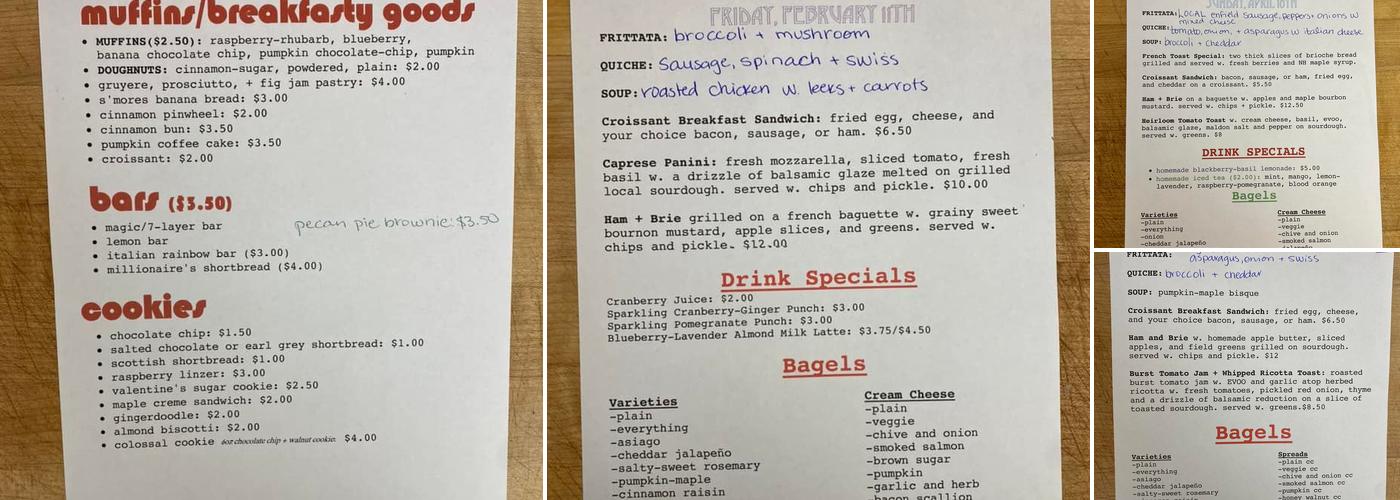 muffins/breakfasty goods
• MUFFINS($2.50): raspberry-rhubarb, blueberry,
banana chocolate chip, pumpkin chocolate-chip, pumpkin
• DOUGHNUTS: cinnamon-sugar, powdered, plain: $2.00
• gruyere, prosciutto, + fig jam pastry: $4.00
• s'mores banana bread: $3.00
• cinnamon pinwheel: $2.00
• cinnamon bun: $3.50
• pumpkin coffee cake: $3.50
• croissant: $2.00
bars ($3.50)
• magic/7-layer bar
pecan pie brownie: $3.50
• lemon bar
• italian rainbow bar ($3.00)
• millionaire's shortbread ($4.00)
cookies
• chocolate chip: $1.50
• salted chocolate or earl grey shortbread: $1.00
• scottish shortbread: $1.00
• raspberry linzer: $3.00
• valentine's sugar cookie: $2.50
• maple creme sandwich: $2.00
• gingerdoodle: $2.00
• almond biscotti: $2.00
• colossal cookie 6oz chocolate chip + walnut cookie. $4.00
FRIDAY, FEBRUARY 11TH
FRITTATA: broccoli + mushroom
QUICHE: Sausage, spinach + swiss
SOUP: roasted chicken w. leeks + carrots
Croissant Breakfast Sandwich: fried egg, cheese, and
your choice bacon, sausage, or ham. $6.50
Caprese Panini: fresh mozzarella, sliced tomato, fresh
basil w. a drizzle of balsamic glaze melted on grilled
local sourdough. served w. chips and pickle. $10.00
Ham + Brie grilled on a french baguette w. grainy sweet
bournon mustard, apple slices, and greens. served w.
chips and pickle. $12.00
Drink Specials
Cranberry Juice: $2.00
Sparkling Cranberry-Ginger Punch: $3.00
Sparkling Pomegranate Punch: $3.00
Blueberry-Lavender Almond Milk Latte: $3.75/$4.50
Bagels
Varieties
-plain
-everything
-asiago
-cheddar jalapeño
-salty-sweet rosemary
-pumpkin-maple
-cinnamon raisin
Cream Cheese
-plain
-veggie
-chive and onion
-smoked salmon
-brown sugar
-pumpkin
-garlic and herb
-bacon scallion
SUNDAY, APRIL 10TH
FRITTATA: LOCAL enfield sausage, peppers + onions w
mixed cheese
QUICHE: tomato, onion, + asparagus w italian cheese
SOUP: broccoli + cheddar
French Toast Special: two thick slices of brioche bread
grilled and served w. fresh berries and NH maple syrup.
Croissant Sandwich: bacon, sausage, or ham, fried egg,
and cheddar on a croissant. $5.50
Ham + Brie on a baguette w. apples and maple bourbon
mustard. served w. chips + pickle. $12.50
Heirloom Tomato Toast w. cream cheese, basil, evoo,
balsamic glaze, maldon salt and pepper on sourdough.
served w. greens. $8
DRINK SPECIALS
• homemade blackberry-basil lemonade: $5.00
• homemade iced tea ($2.00): mint, mango, lemon-
lavender, raspberry-pomegranate, blood orange
Bagels
Varieties
-plain
-everything
-onion
-cheddar jalapeño
Cream Cheese
-plain
-veggie
-chive and onion
-smoked salmon
FRITTATA: asparagus, onion + swiss
QUICHE: broccoli + cheddar
SOUP: pumpkin-maple bisque
Croissant Breakfast Sandwich: fried egg, cheese,
and your choice bacon, sausage, or ham. $6.50
Ham and Brie w. homemade apple butter, sliced
apples, and field greens grilled on sourdough.
served w. chips and pickle. $12
Burst Tomato Jam + Whipped Ricotta Toast: roasted
burst tomato jam w. EVOO and garlic atop herbed
ricotta w. fresh tomatoes, pickled red onion, thyme
and a drizzle of balsamic reduction on a slice of
toasted sourdough. served w. greens.$8.50
Bagels
Varieties
-plain
-everything
-asiago
-cheddar jalapeño
-salty-sweet rosemary
Spreads
-plain cc
-veggie cc
-chive and onion cc
-smoked salmon cc
-pumpkin cc
-honey walnut cc